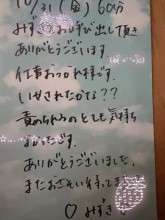 10/31(金)60分
みずきをお呼び出し頂き
ありがとうございます
仕事おつかれ様です。
いやされたかな??
責められるのとても気持ち
よかったです。
ありがとうございました。
またおさそい待ってます
♡みずき